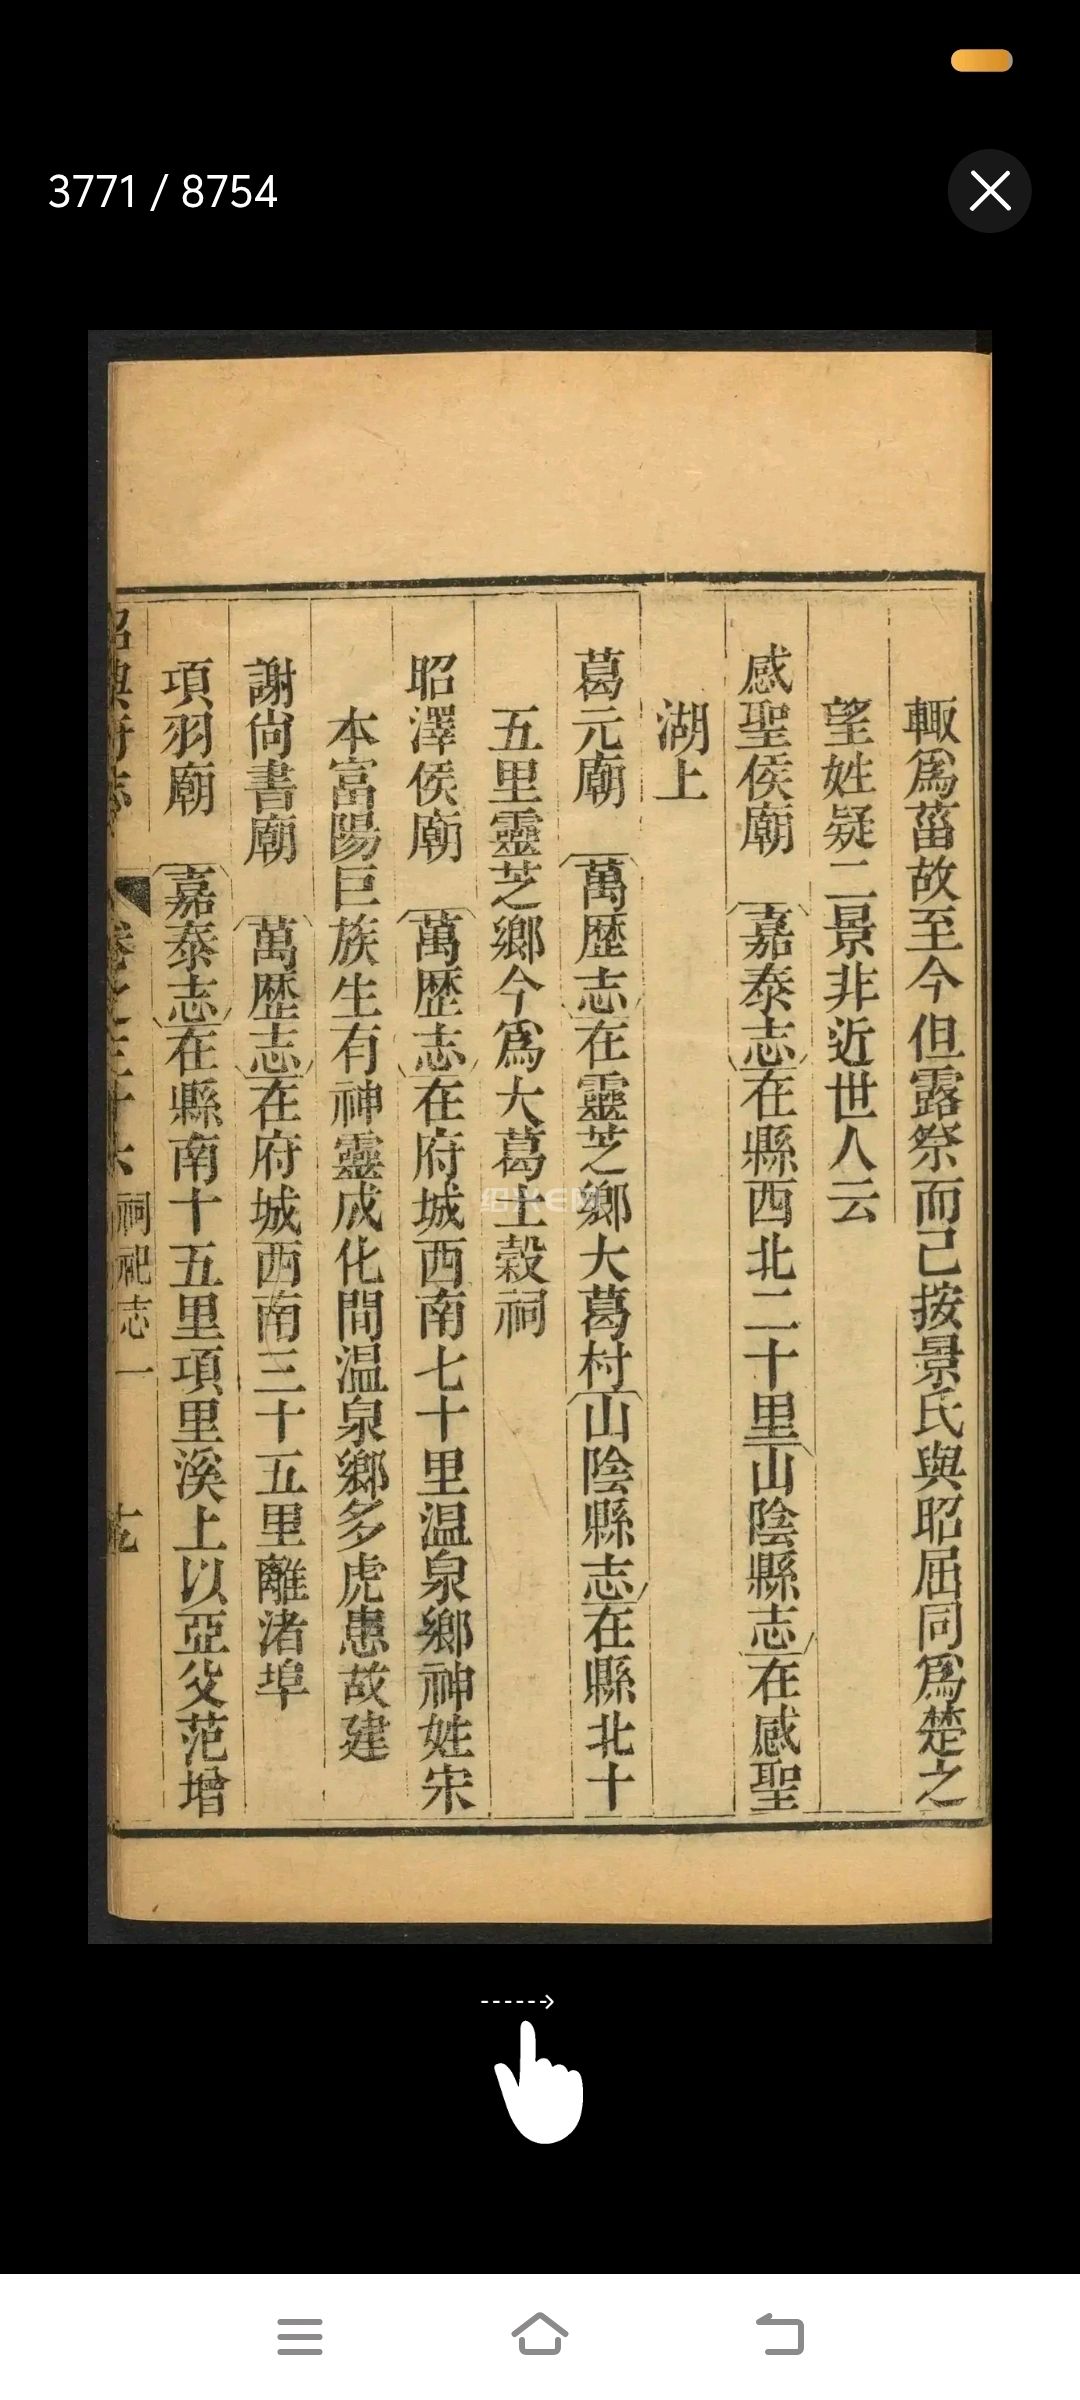 3771 / 8754
輙為菑故至今但露祭而己按景氏與昭屈同為楚之
望姓疑二景非近世人云
感聖侯廟 嘉泰志在縣西北二十里山陰縣志在感聖
湖上
葛元廟 萬歴志在靈芝鄉大葛村山陰縣志在縣北十
五里靈芝鄉今為大葛土榖祠
昭澤侯廟 萬歴志在府城西南七十里温泉鄉神姓宋
本富陽巨族生有神靈成化間温泉鄉多虎患故建
謝尙書廟 萬歴志在府城西南三十五里離渚埠
項羽廟 嘉泰志在縣南十五里項里溪上以亞父范增
祠祀志一
绍兴E网